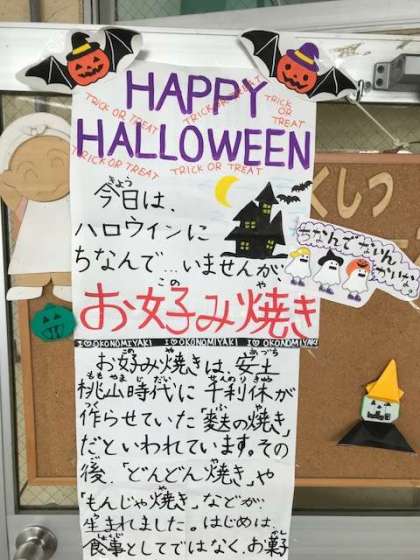 HAPPY
HALLOWEEN
TRICK OR TREAT
TRICK OR TREAT
TRICK OR TREAT
TRICK OR TREAT
TRICK OR TREAT
今日は、
ハロウィンに
ちなんで…いませんが、
お好み焼き
I♡OKONOMIYAKI I♡OKONOMIYAKI I♡OKONOMIYAKI
お好み焼きは、安土
桃山時代に千利休が
作らせていた「麩の焼き」
だといわれています。その
後、「どんどん焼き」や
「もんじゃ焼き」などが、
生まれました。はじめは、
食事としてではなく、お菓子
ちなんでないん
かい!
くしつ